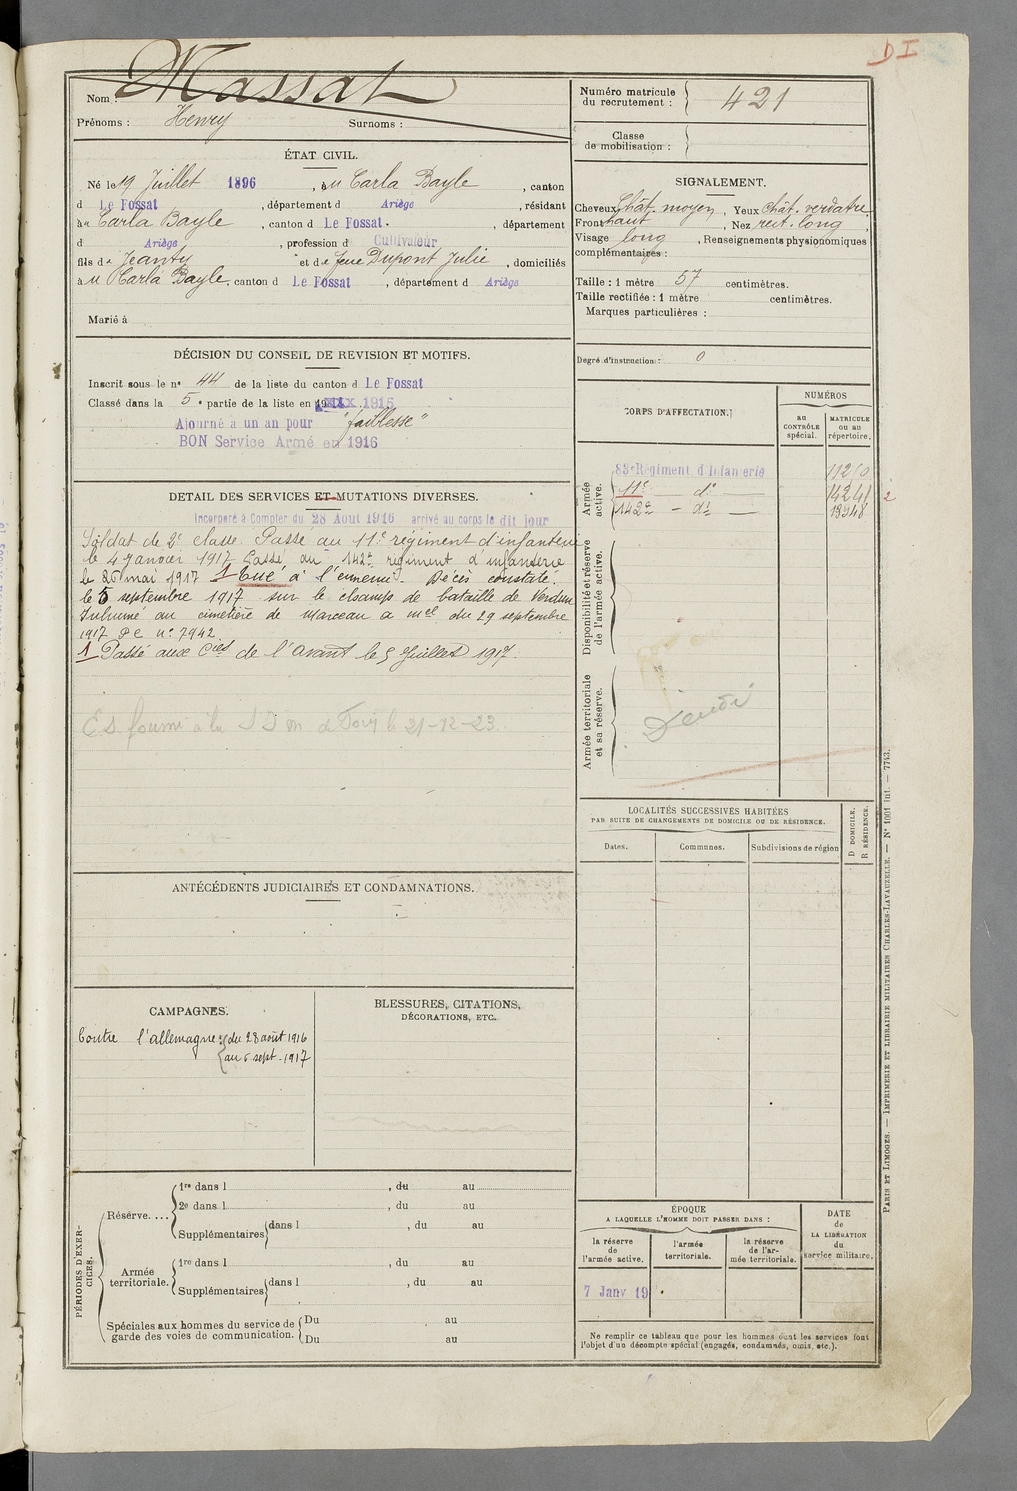 D I
Nom : Massat
Prénoms : Henry Surnoms :
Numéro matricule du recrutement : 421
Classe de mobilisation :
ÉTAT CIVIL.
Né le 19 Juillet 1896, à u Carla Bayle, canton
d Le Fossat, département d Ariège, résidant
à u Carla Bayle, canton d Le Fossat, département
d Ariège, profession d Cultivateur
fils de Jeanty et de feue Dupont Julie, domiciliés
à u Carla Bayle, canton d Le Fossat, département d Ariège
Marié à
SIGNALEMENT.
Cheveux Chât. moyen, Yeux Chât. verdatre
Front haut, Nez rect. long,
Visage long, Renseignements physionomiques
complémentaires :
Taille : 1 mètre 57 centimètres.
Taille rectifiée : 1 mètre centimètres.
Marques particulières :
Degré d'instruction : 0
DÉCISION DU CONSEIL DE REVISION ET MOTIFS.
Inscrit sous le n° 44 de la liste du canton d Le Fossat
Classé dans la 5e partie de la liste en 1915
Ajourné a un an pour "faiblesse"
BON Service Armé en 1916
DETAIL DES SERVICES ET MUTATIONS DIVERSES.
Incorporé à Compter du 28 Aout 1916 arrivé au corps le dit jour
Soldat de 2e classe. Passé au 11e régiment d'infanterie
le 4 Janvier 1917. Passé au 142e régiment d'infanterie
le 26 mai 1917 1 Tué à l'ennemi. Décès constaté
le 5 septembre 1917 sur le champ de bataille de Verdun
Inhumé au cimetière de Marceau a mel du 29 septembre
1917 n° 7942.
1 Passé aux Cies de l'avant le 5 Juillet 1917.
le 21-12-23.
CORPS D'AFFECTATION.
NUMÉROS
au CONTRÔLE spécial.
MATRICULE ou au répertoire.
Armée active.
83e Régiment d'Infanterie
11e — d° — 14241 2
142e — d° — 13948
Disponibilité et réserve de l'armée active.
Armée territoriale et sa réserve.
LOCALITÉS SUCCESSIVES HABITÉES
PAR SUITE DE CHANGEMENTS DE DOMICILE OU DE RÉSIDENCE.
Dates.
Communes.
Subdivisions de région
D DOMICILE.
R RÉSIDENCE.
ANTÉCÉDENTS JUDICIAIRES ET CONDAMNATIONS.
CAMPAGNES.
Contre l'allemagne : du 28 août 1916
au 5 sept. 1917
BLESSURES, CITATIONS,
DÉCORATIONS, ETC.
PÉRIODES D'EXERCICES.
Réserve....
1re dans l , du au
2e dans l , du au
Supplémentaires dans l , du au
Armée territoriale.
1re dans l , du au
Supplémentaires dans l , du au
Spéciales aux hommes du service de garde des voies de communication.
Du au
Du au
ÉPOQUE
A LAQUELLE L'HOMME DOIT PASSER DANS :
la réserve de l'armée active.
l'armée territoriale.
la réserve de l'armée territoriale.
DATE de LA LIBÉRATION du service militaire.
7 Janv 19
Ne remplir ce tableau que pour les hommes dont les services font
l'objet d'un décompte spécial (engagés, condamnés, omis, etc.).
PARIS ET LIMOGES. — IMPRIMERIE ET LIBRAIRIE MILITAIRES CHARLES-LAVAUZELLE. — N° 1001 int. — 7743.